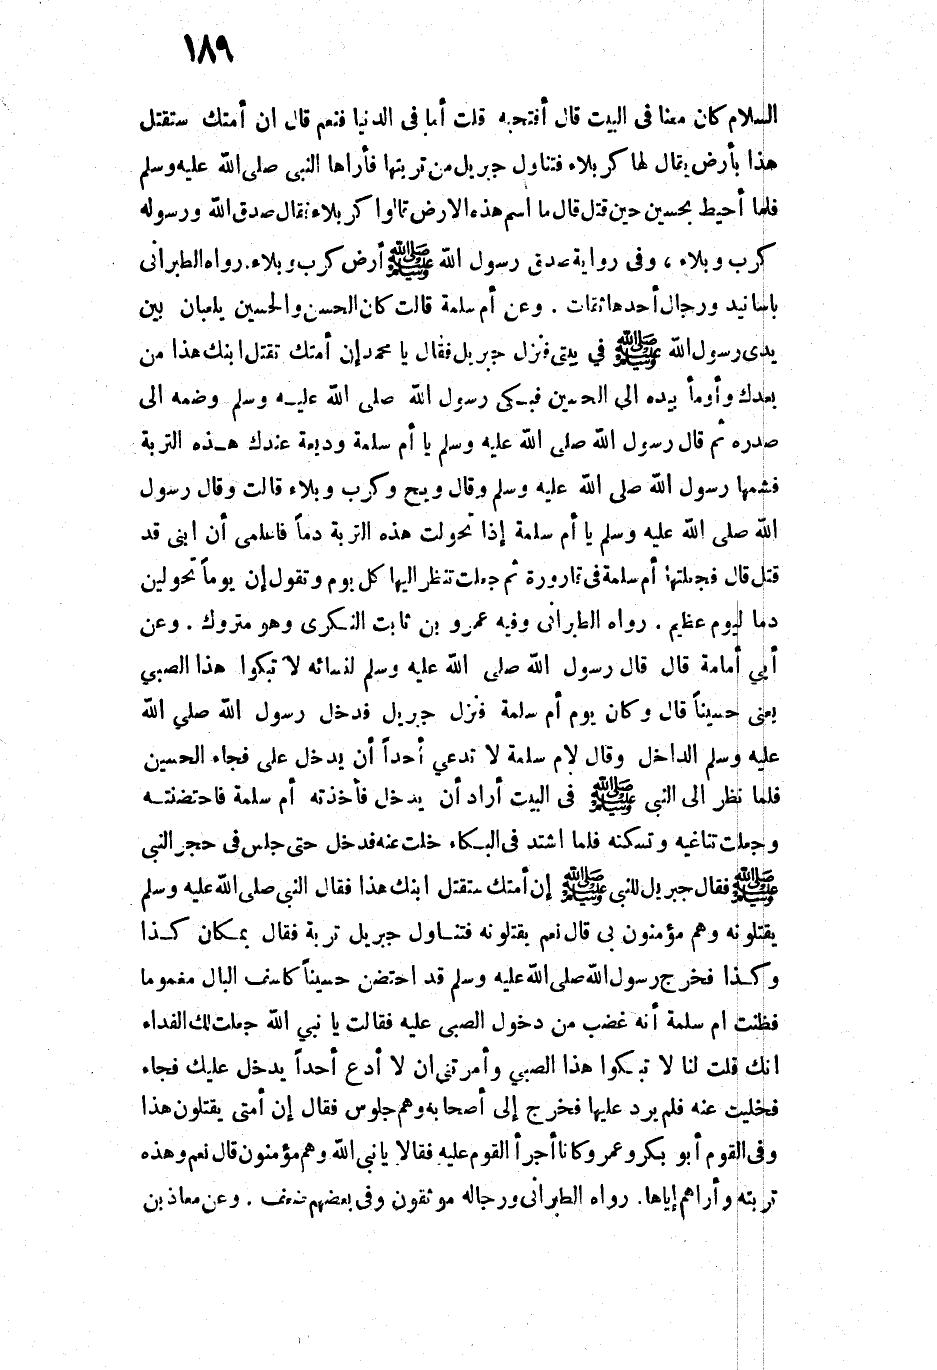 ١٨٩
السلام كان معنا فى البيت قال أفتحبه قلت أما فى الدنيا فنعم قال ان أمتك ستقتل
هذا بأرض يقال لها كربلاء فتناول جبريل من تربتها فأراها النبى صلى الله عليه وسلم
فلما أحيط بحسين حين قتل قال ما اسم هذه الارض قالوا كربلاء فقال صدق الله ورسوله
كرب وبلاء ، وفى رواية صدق رسول الله ﷺ أرض كرب وبلاء. رواه الطبرانى
باسانيد ورجال أحدها ثقات . وعن أم سلمة قالت كان الحسن والحسين يلعبان بين
يدى رسول الله ﷺ في بيتى فنزل جبريل فقال يا محمد إن أمتك تقتل ابنك هذا من
بعدك وأومأ بيده الي الحسين فبكى رسول الله صلى الله عليه وسلم وضمه الى
صدره ثم قال رسول الله صلى الله عليه وسلم يا أم سلمة وديعة عندك هذه التربة
فشمها رسول الله صلى الله عليه وسلم وقال ويح وكرب وبلاء قالت وقال رسول
الله صلى الله عليه وسلم يا أم سلمة إذا تحولت هذه التربة دماً فاعلمى أن ابنى قد
قتل قال فجعلتها أم سلمة فى قارورة ثم جعلت تنظر اليها كل يوم وتقول إن يوماً تحولين
دما ليوم عظيم . رواه الطبرانى وفيه عمرو بن ثابت النكرى وهو متروك . وعن
أبي أمامة قال قال رسول الله صلى الله عليه وسلم لنسائه لا تبكوا هذا الصبي
يعنى حسيناً قال وكان يوم أم سلمة فنزل جبريل فدخل رسول الله صلي الله
عليه وسلم الداخل وقال لام سلمة لا تدعي أحداً أن يدخل على فجاء الحسين
فلما نظر الى النبى ﷺ فى البيت أراد أن يدخل فأخذته أم سلمة فاحتضنته
وجعلت تناغيه وتسكنه فلما اشتد فى البكاء خلت عنه فدخل حتى جلس فى حجر النبى
ﷺ فقال جبريل للنبى ﷺ إن أمتك ستقتل ابنك هذا فقال النبى صلى الله عليه وسلم
يقتلونه وهم مؤمنون بى قال نعم يقتلونه فتناول جبريل تربة فقال بمكان كذا
وكذا فخرج رسول الله صلى الله عليه وسلم قد احتضن حسيناً كاسف البال مغموما
فظنت ام سلمة أنه غضب من دخول الصبى عليه فقالت يا نبي الله جعلت لك الفداء
انك قلت لنا لا تبكوا هذا الصبي وأمرتنى ان لا أدع أحداً يدخل عليك فجاء
فخليت عنه فلم يرد عليها فخرج إلى أصحابه وهم جلوس فقال إن أمتى يقتلون هذا
وفى القوم أبو بكر وعمر وكانا أجرأ القوم عليه فقالا يا نبى الله وهم مؤمنون قال نعم وهذه
تربته وأراهم إياها. رواه الطبرانى ورجاله موثقون وفى بعضهم ضعف . وعن معاذ بن